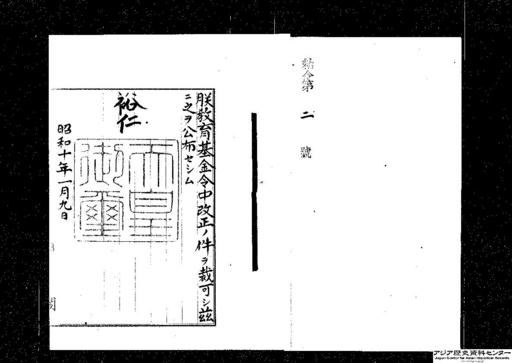 勅令第二號
朕敎育基金令中改正ノ件ヲ裁可シ茲
ニ之ヲ公布セシム
裕仁
天皇御璽
昭和十年一月九日
アジア歴史資料センター
Japan Center for Asian Historical Records